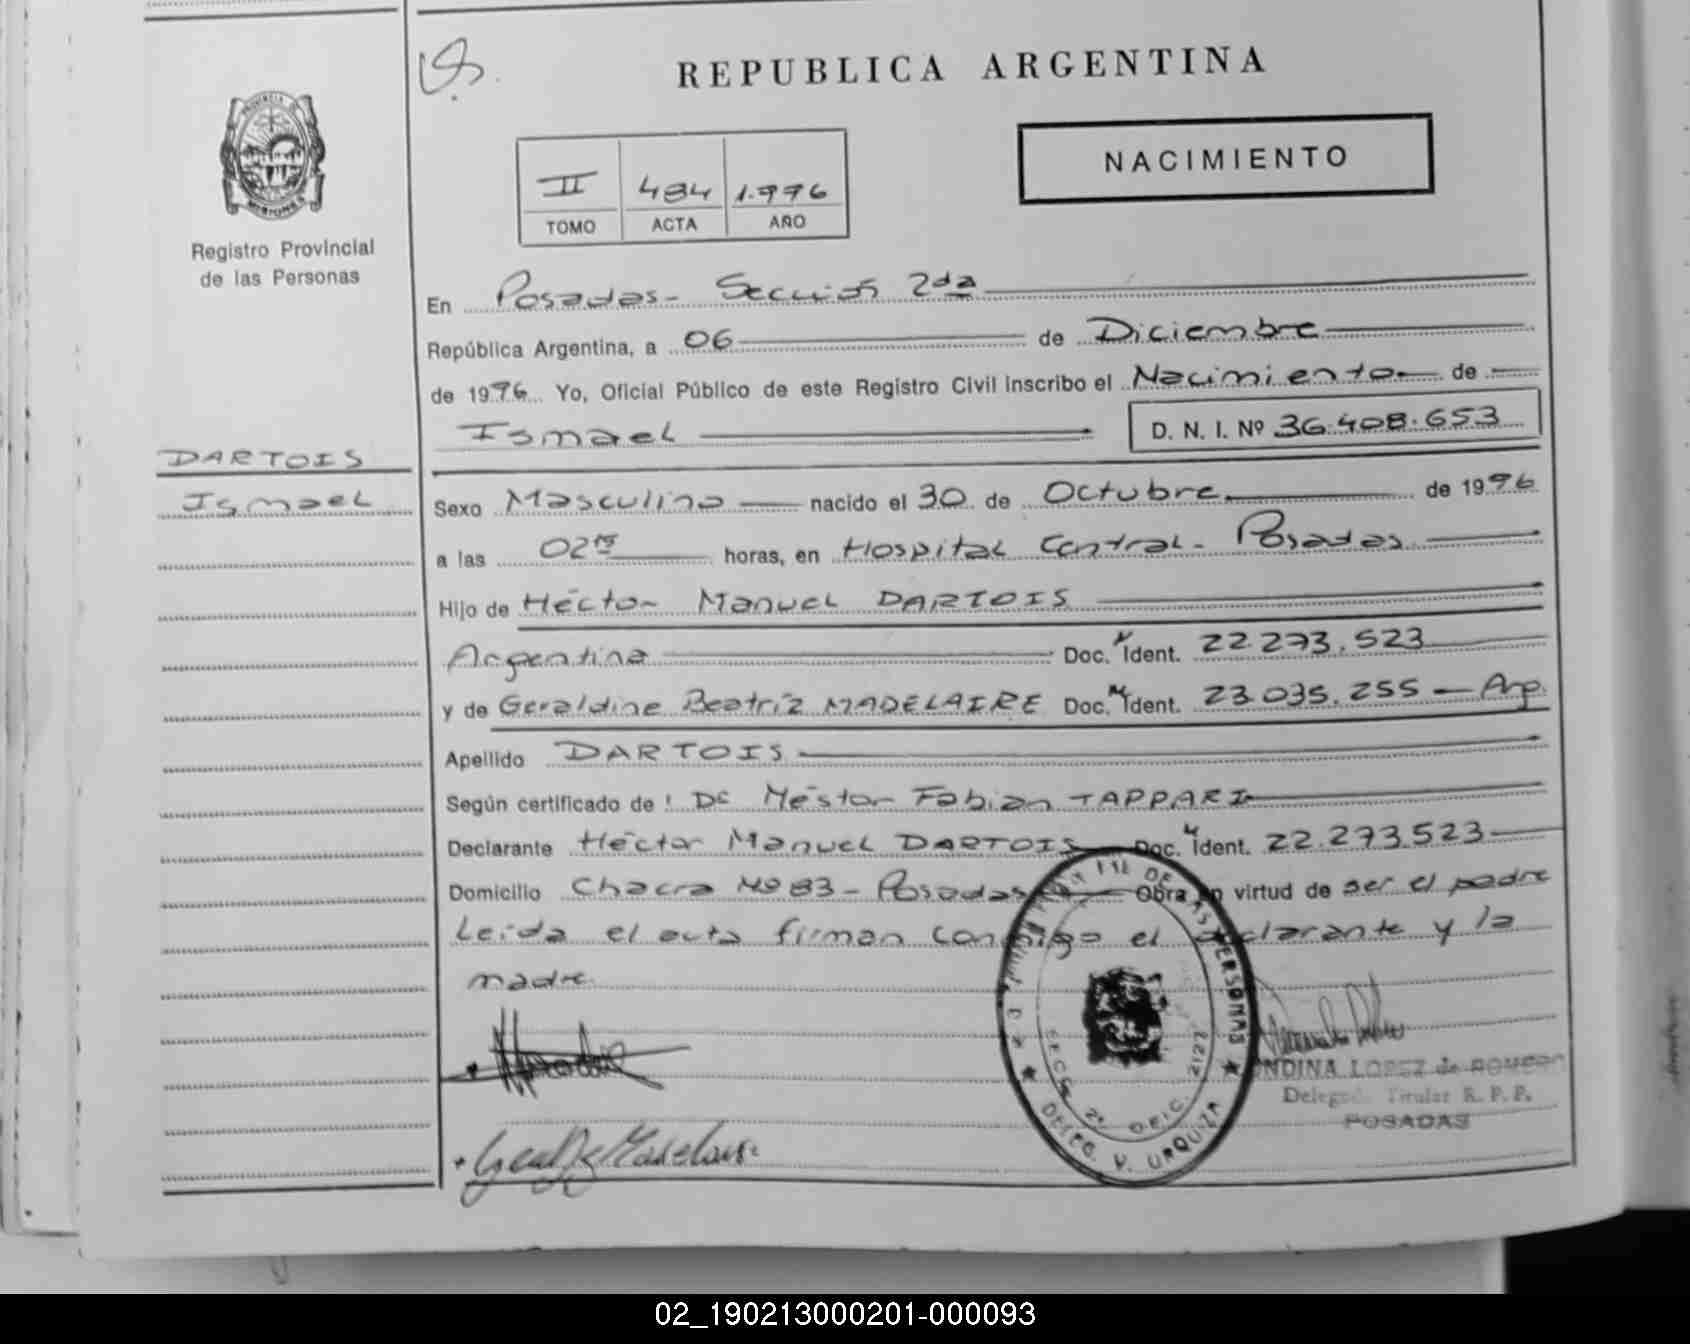 REPUBLICA ARGENTINA
PROVINCIA DE
MISIONES
Registro Provincial
de las Personas
NACIMIENTO
II 484 1.996
TOMO ACTA AÑO
En Posadas - Sección 2da
República Argentina, a 06 de Diciembre
de 1996 Yo, Oficial Público de este Registro Civil inscribo el Nacimiento de
Ismael D. N. I. Nº 36.408.653
DARTOIS
Ismael
Sexo Masculino nacido el 30 de Octubre de 1996
a las 02 horas, en Hospital Central - Posadas
Hijo de Héctor Manuel DARTOIS
Argentina Doc. Ident. 22.273.523
y de Geraldine Beatriz MADELAIRE Doc. Ident. 23.035.255 - Arg.
Apellido DARTOIS
Según certificado de: Dr Néstor Fabian TAPPARI
Declarante Héctor Manuel DARTOIS Doc. Ident. 22.273.523
Domicilio Chacra Nº 83 - Posadas Obra en virtud de ser el padre
Leída el acta firman conmigo el declarante y la
madre
DE LAS PERSONAS
SECC. 2ª OFIC. 2127
DELEG. V. URQUIZA
ONDINA LOPEZ de ROMERO
Delegada Titular R. P. P.
POSADAS
02_190213000201-000093